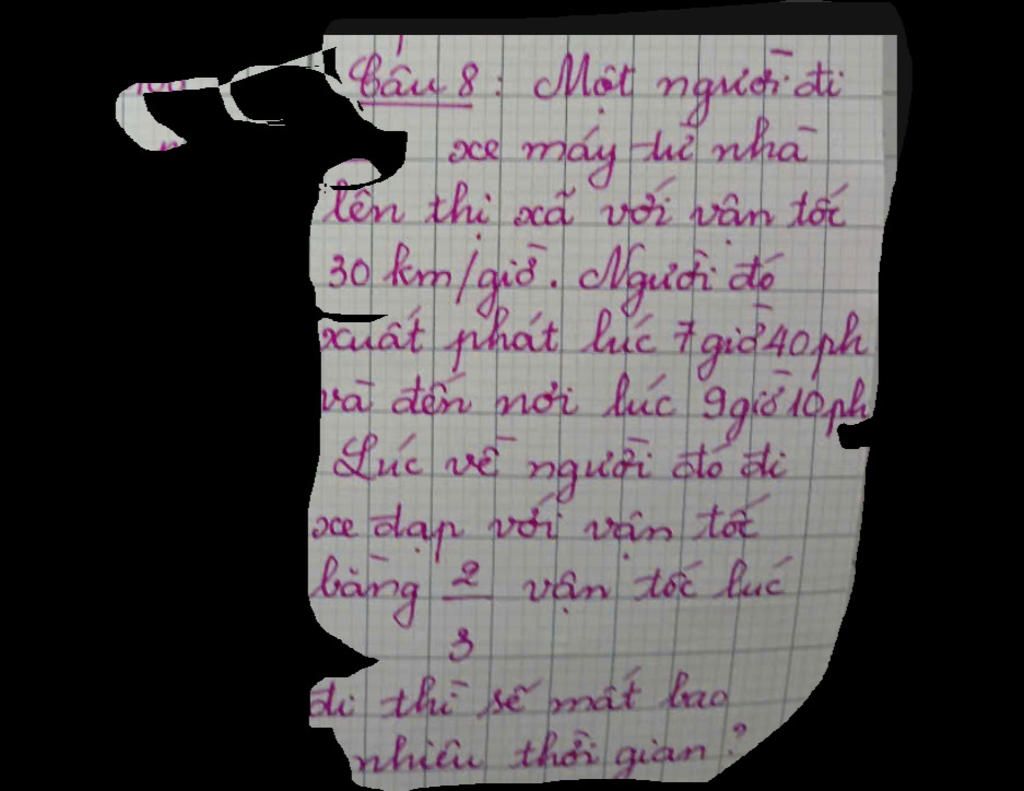 Câu 8: Một người đi
xe máy từ nhà
lên thị xã với vận tốc
30 km/giờ. Người đó
xuất phát lúc 7giờ40ph
và đến nơi lúc 9giờ10ph
Lúc về người đó đi
xe đạp với vận tốc
bằng 2/3 vận tốc lúc
đi thì sẽ mất bao
nhiêu thời gian?